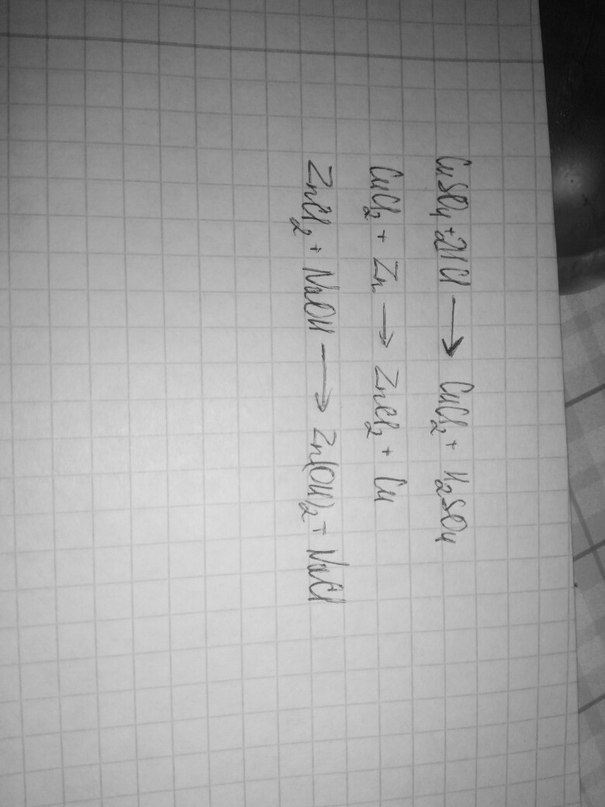 CuSO₄+2HCl → CuCl₂ + H₂SO₄
CuCl₂ + Zn → ZnCl₂ + Cu
ZnCl₂ + NaOH → Zn(OH)₂ + NaCl